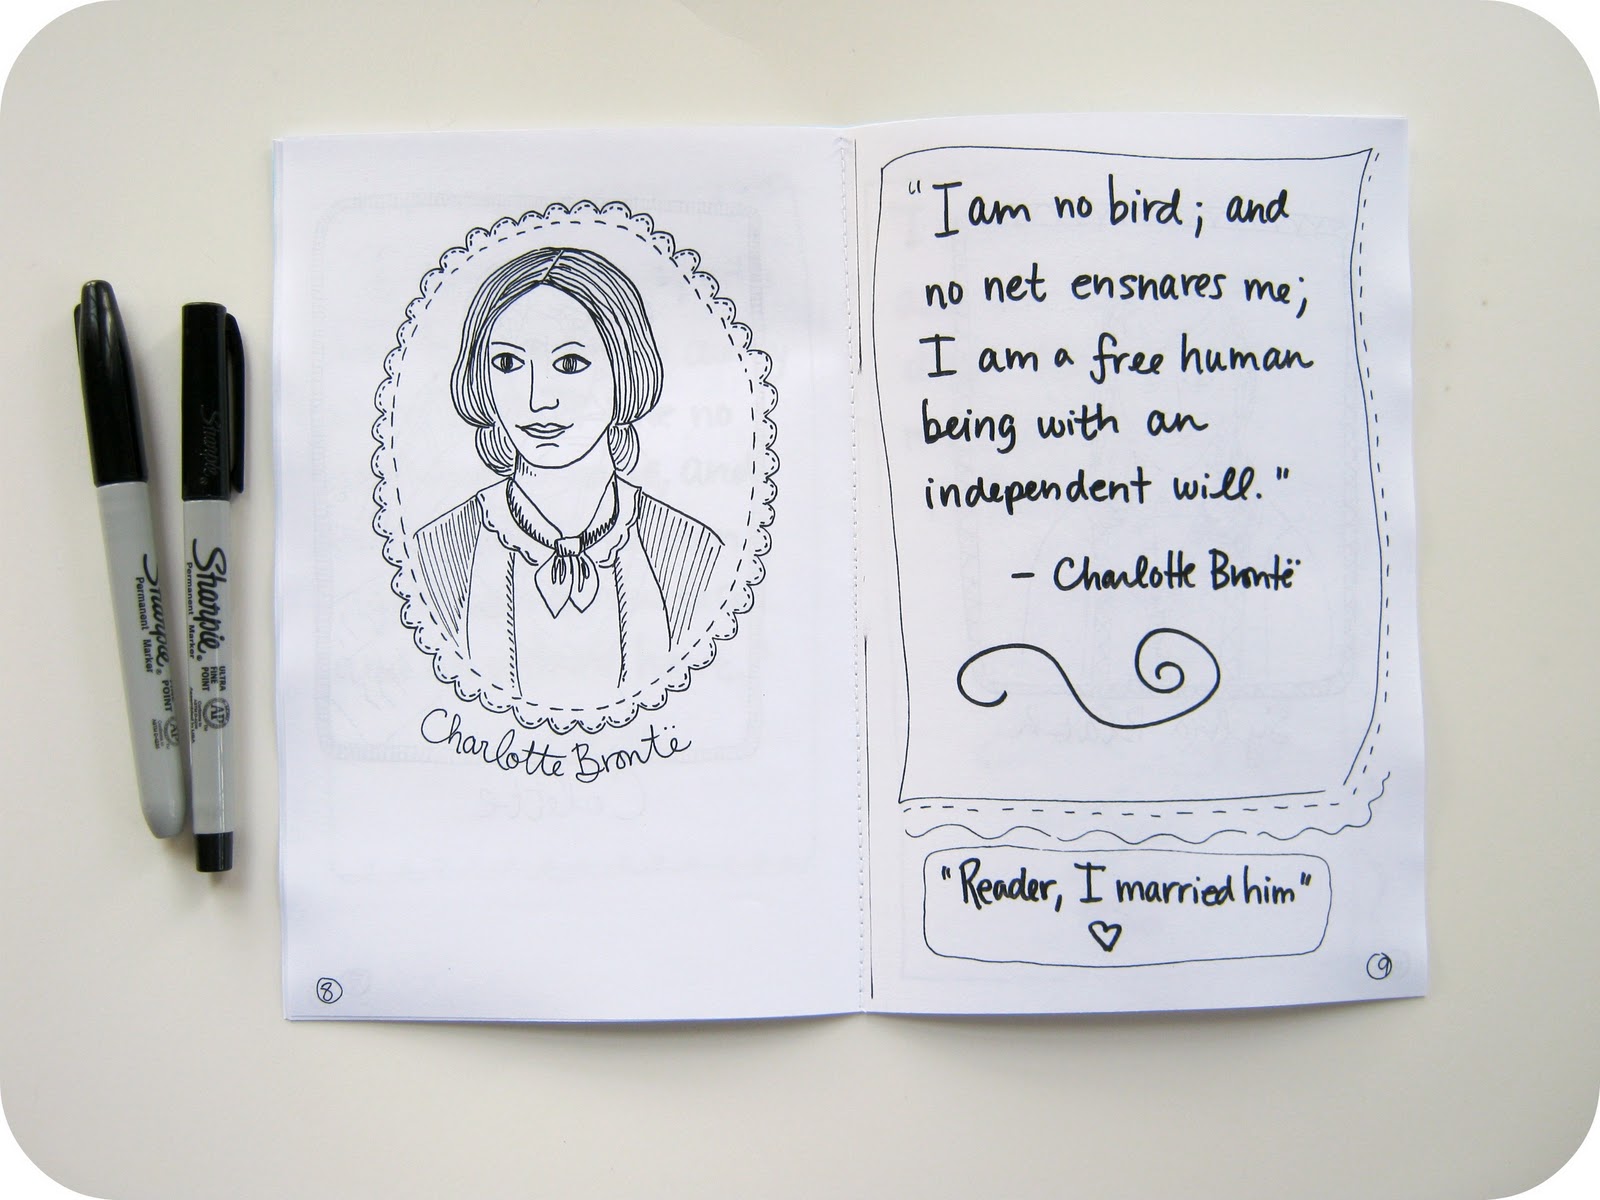 Sharpie.
Permanent Marker
POINT
AP
Sharpie.
Sharpie.
Permanent Marker
ULTRA
FINE
POINT
AP
Charlotte Brontë
8
"I am no bird; and
no net ensnares me;
I am a free human
being with an
independent will."
- Charlotte Brontë
"Reader, I married him"
9